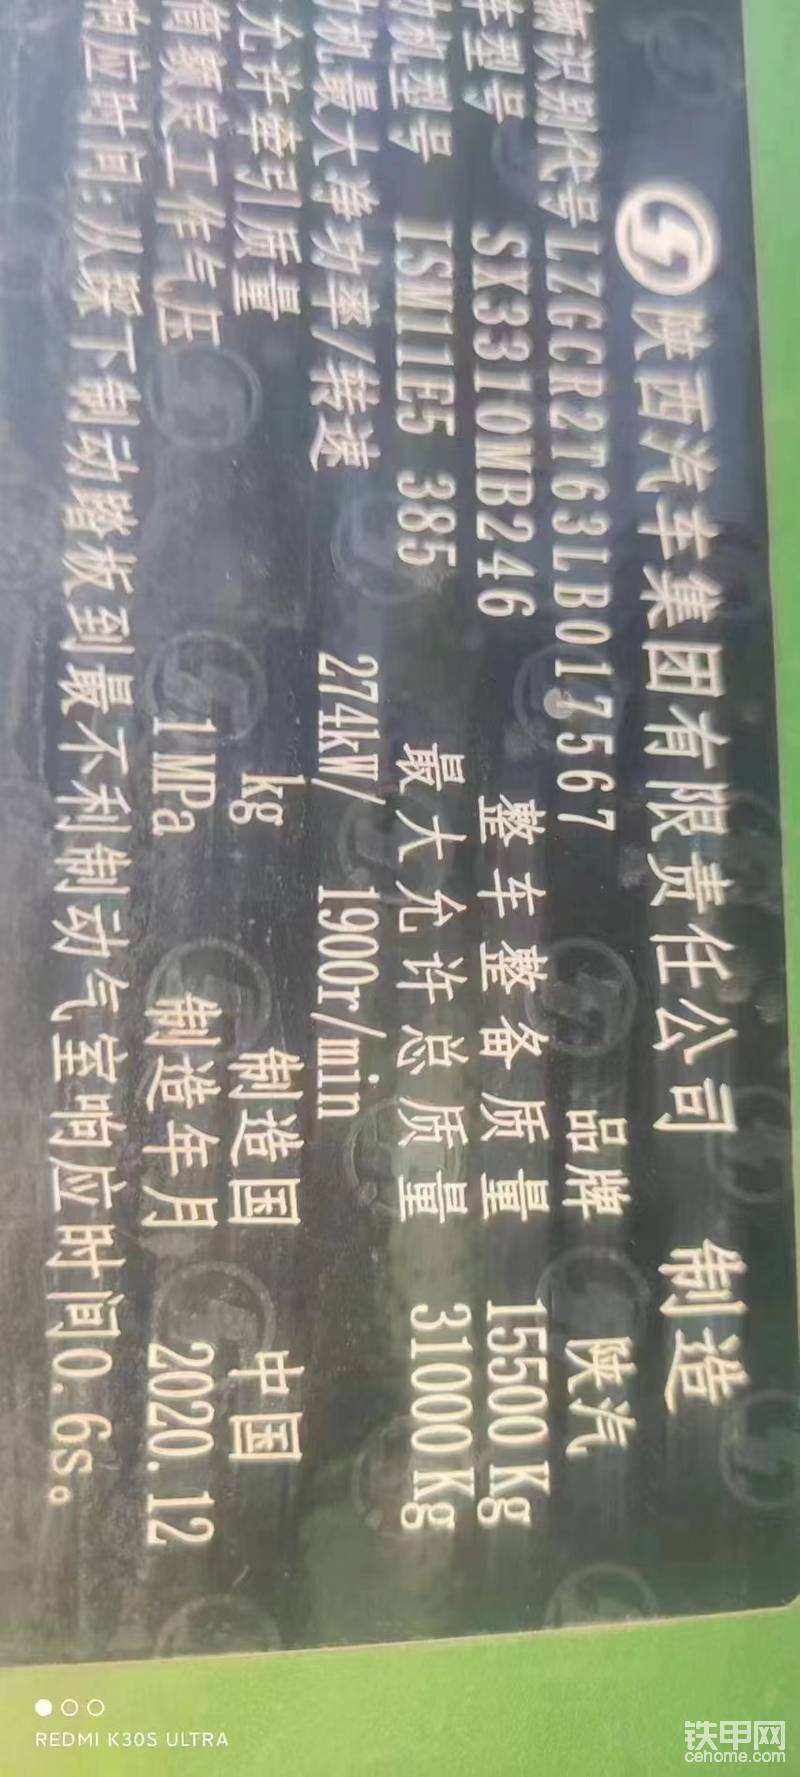 陕西汽车集团有限责任公司 制造
辆识别代号 LZGCR2T63LB017567 品牌 陕汽
车型号 SX3310MB246 整车整备质量 15500Kg
动机型号 ISM11E5 385 最大允许总质量 31000Kg
动机最大净功率/转速 274kW/ 1900r/min
允许牵引质量 kg 制造国 中国
额定工作气压 1MPa 制造年月 2020.12
响应时间:从踩下制动踏板到最不利制动气室响应时间0.6s。
REDMI K30S ULTRA
铁甲网
cehome.com